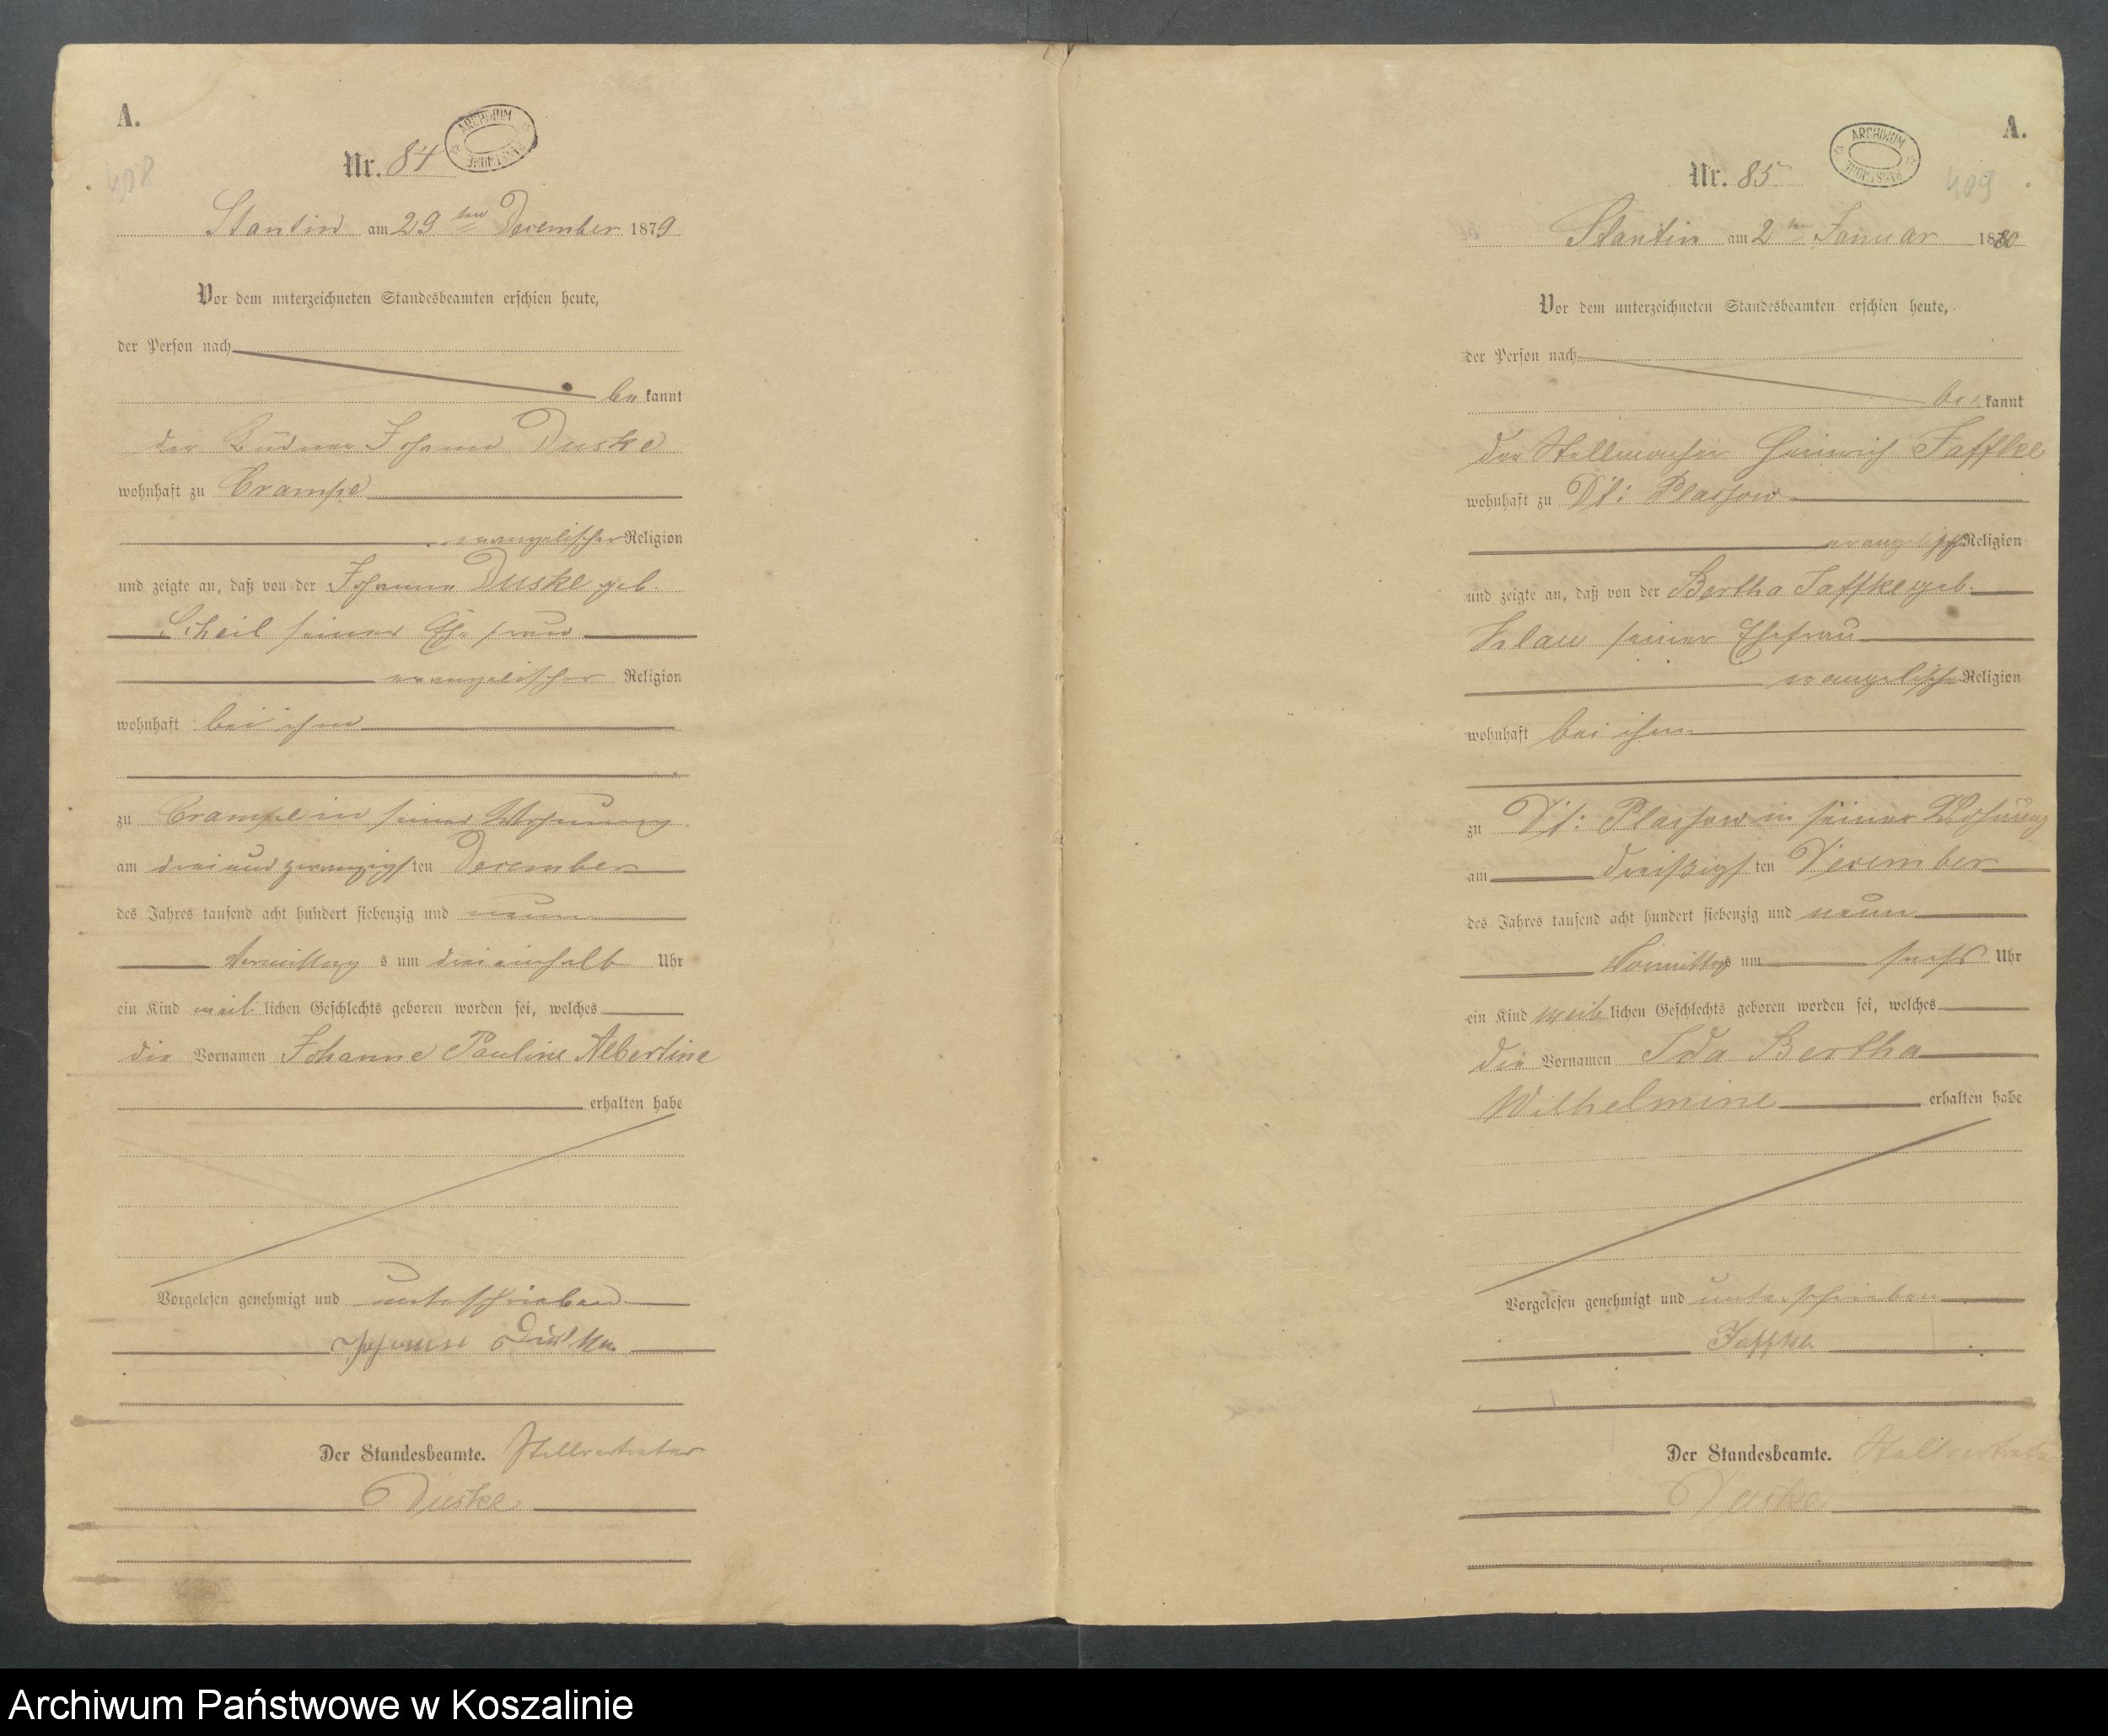 A.
Nr. 84
ARCHIWUM PAŃSTWOWE
408
Stantin am 29 ten December 1879
Vor dem unterzeichneten Standesbeamten erschien heute,
der Person nach
be kannt
der Büdner Johann Duske
wohnhaft zu Crampe
evangelischer Religion
und zeigte an, daß von der Johanne Duske geb.
Scheil seiner Ehefrau
evangelischer Religion
wohnhaft bei ihm
zu Crampe in seiner Wohnung
am drei und zwanzigsten December
des Jahres tausend acht hundert siebenzig und neun
Vormittags um drei einhalb Uhr
ein Kind weiblichen Geschlechts geboren worden sei, welches
die Vornamen Johanne Pauline Albertine
erhalten habe
Vorgelesen genehmigt und unterschrieben
Johann Duske
Der Standesbeamte. Stellvertreter
Duske
A.
Nr. 85.
ARCHIWUM PAŃSTWOWE
409
Stantin am 2 ten Januar 1880
Vor dem unterzeichneten Standesbeamten erschien heute,
der Person nach
be kannt
der Stellmacher Heinrich Jaffke
wohnhaft zu Dt: Plassow
evangelischer Religion
und zeigte an, daß von der Bertha Jaffke geb.
seiner Ehefrau
evangelischer Religion
wohnhaft bei ihm
zu Dt: Plassow in seiner Wohnung
am dreißigsten December
des Jahres tausend acht hundert siebenzig und neun
Vormittags um sechs Uhr
ein Kind weiblichen Geschlechts geboren worden sei, welches
die Vornamen Ida Bertha
Wilhelmine erhalten habe
Vorgelesen genehmigt und unterschrieben
Jaffke
Der Standesbeamte. Stellvertreter
Duske
Archiwum Państwowe w Koszalinie